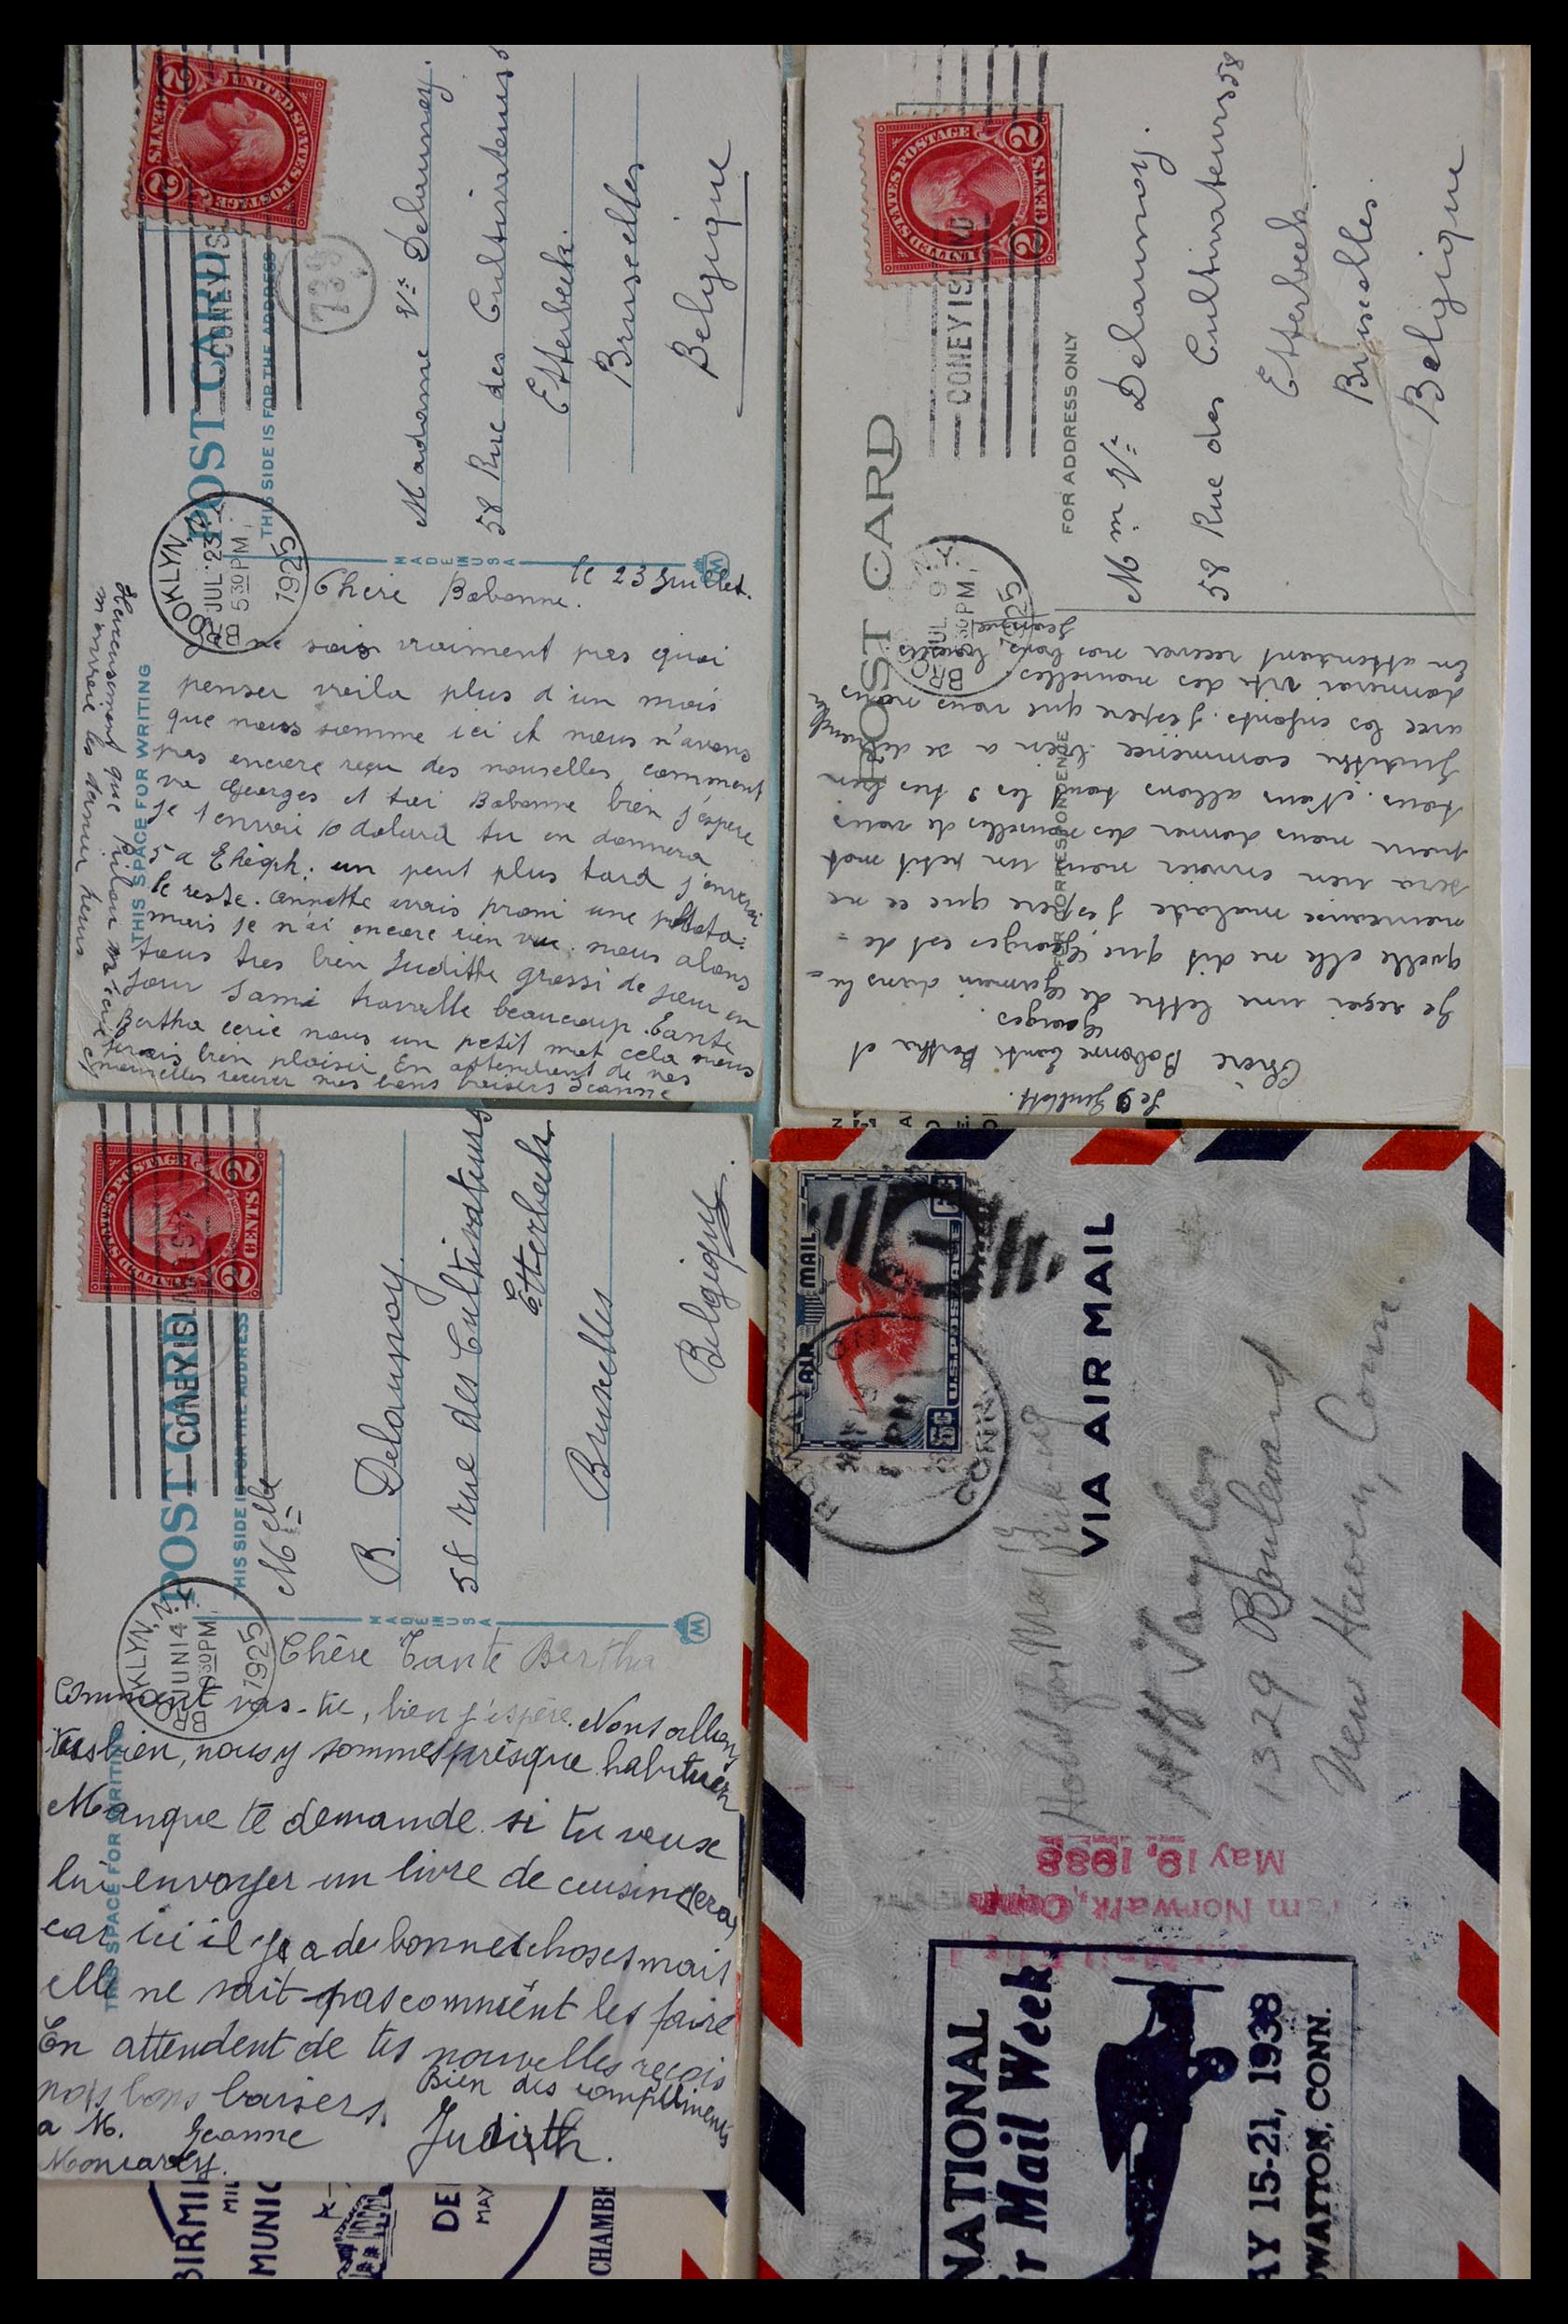 POST CARD
THIS SIDE IS FOR THE ADDRESS
THIS SPACE FOR WRITING
MADE IN USA
UNITED STATES POSTAGE
2 CENTS 2
BROOKLYN, N.Y.
JUL 23
5 30 PM
1925
CONEY ISL
Madame Vᵉ Delauney.
58 Rue des Cultivateurs
Etterbeek.
Bruxelles
Belgique
le 23 Juillet.
Chere Bobonne.
Je ne sais vraiment pas quoi
penser voila plus d'un mois
que nous somme ici et nous n'avons
pas encore reçu des nouvelles, comment
va Georges et toi Bobonne bien j'espere
je t'envoi 10 dolard tu en donnera
5 a un peut plus tard j'enverai
le reste. Annette avais promi une
mais je n'ai encore rien vu. nous alons
tous tres bien Juditte grossi de jour en
jour Sami travaille beaucoup. Tante
Bertha ecrie nous un petit mot cela nous
ferais bien plaisir En attendent de vos
nouvelles recever mes bons baisers Jeanne
Heureusement que
les dernier
POST CARD
FOR ADDRESS ONLY
FOR CORRESPONDENCE
UNITED STATES POSTAGE
2 CENTS 2
JUL 9
30 PM
1925
CONEY ISLAND
Mᵐ Vᵉ Delaunoy.
58 Rue des Cultivateurs 58
Etterbeek.
Bruxelles.
Belgique
Le 9 Juillet.
Chère Bobonne Tante Bertha et
Georges.
Je reçoi une lettre de Germain dans la-
quelle elle me dit que Georges est de-
nouveause malade j'espere que ce ne
sera rien envoier nous un petit mot
pour nous donner des nouvelles de vous
tous. Nous allons tout les 3 tres bien
Juditte commence bien a se debrouiller
avec les enfants. J'espere que vous nous
donnerai vite des nouvelles.
En attendant recever nos bons baisers
Jeanne
POST CARD
THIS SIDE IS FOR THE ADDRESS
THIS SPACE FOR WRITING
MADE IN USA
UNITED STATES POSTAGE
2 CENTS 2
BROOKLYN, N.Y.
JUN 14
30 PM
1925
CONEY ISLAND
Melle
B. Delaunoy
58 rue des Cultivateurs
Etterbeek
Bruxelles
Belgique.
Chère Tante Bertha
Comment vas-tu, bien j'espère. Nous allons
très bien, nous y sommes présque habituer
Manque te demande si tu veuse
lui envoyer un livre de
car ici il y a de bonnes choses mais
elle ne sait pas comment les faire
En attendent de tes nouvelles reçois
nos bons baisers.
Bien des compliments
a M.
Jeanne
Judith.
AIR MAIL
U.S. POSTAGE
6¢
CONN
VIA AIR MAIL
Hold for May 19
Pick-up
Taylor
1329 Boulevard
New Haven, Conn.
Norwalk, Conn
May 19, 1938
NATIONAL
Air Mail Week
MAY 15-21, 1938
ROWAYTON, CONN.
BIRMI
MUNIC
CHAMBE